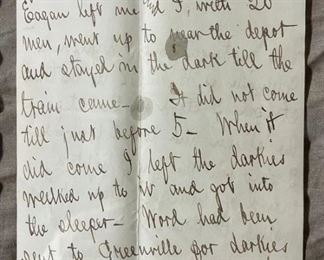 Eagan left me and I, with 20
men, went up to near the depot
and stayed in the dark till the
train came – It did not come
till just before 5 – When it
did come I left the darkies
walked up to it and got into
the sleeper – Word had been
sent to Greenville for darkies